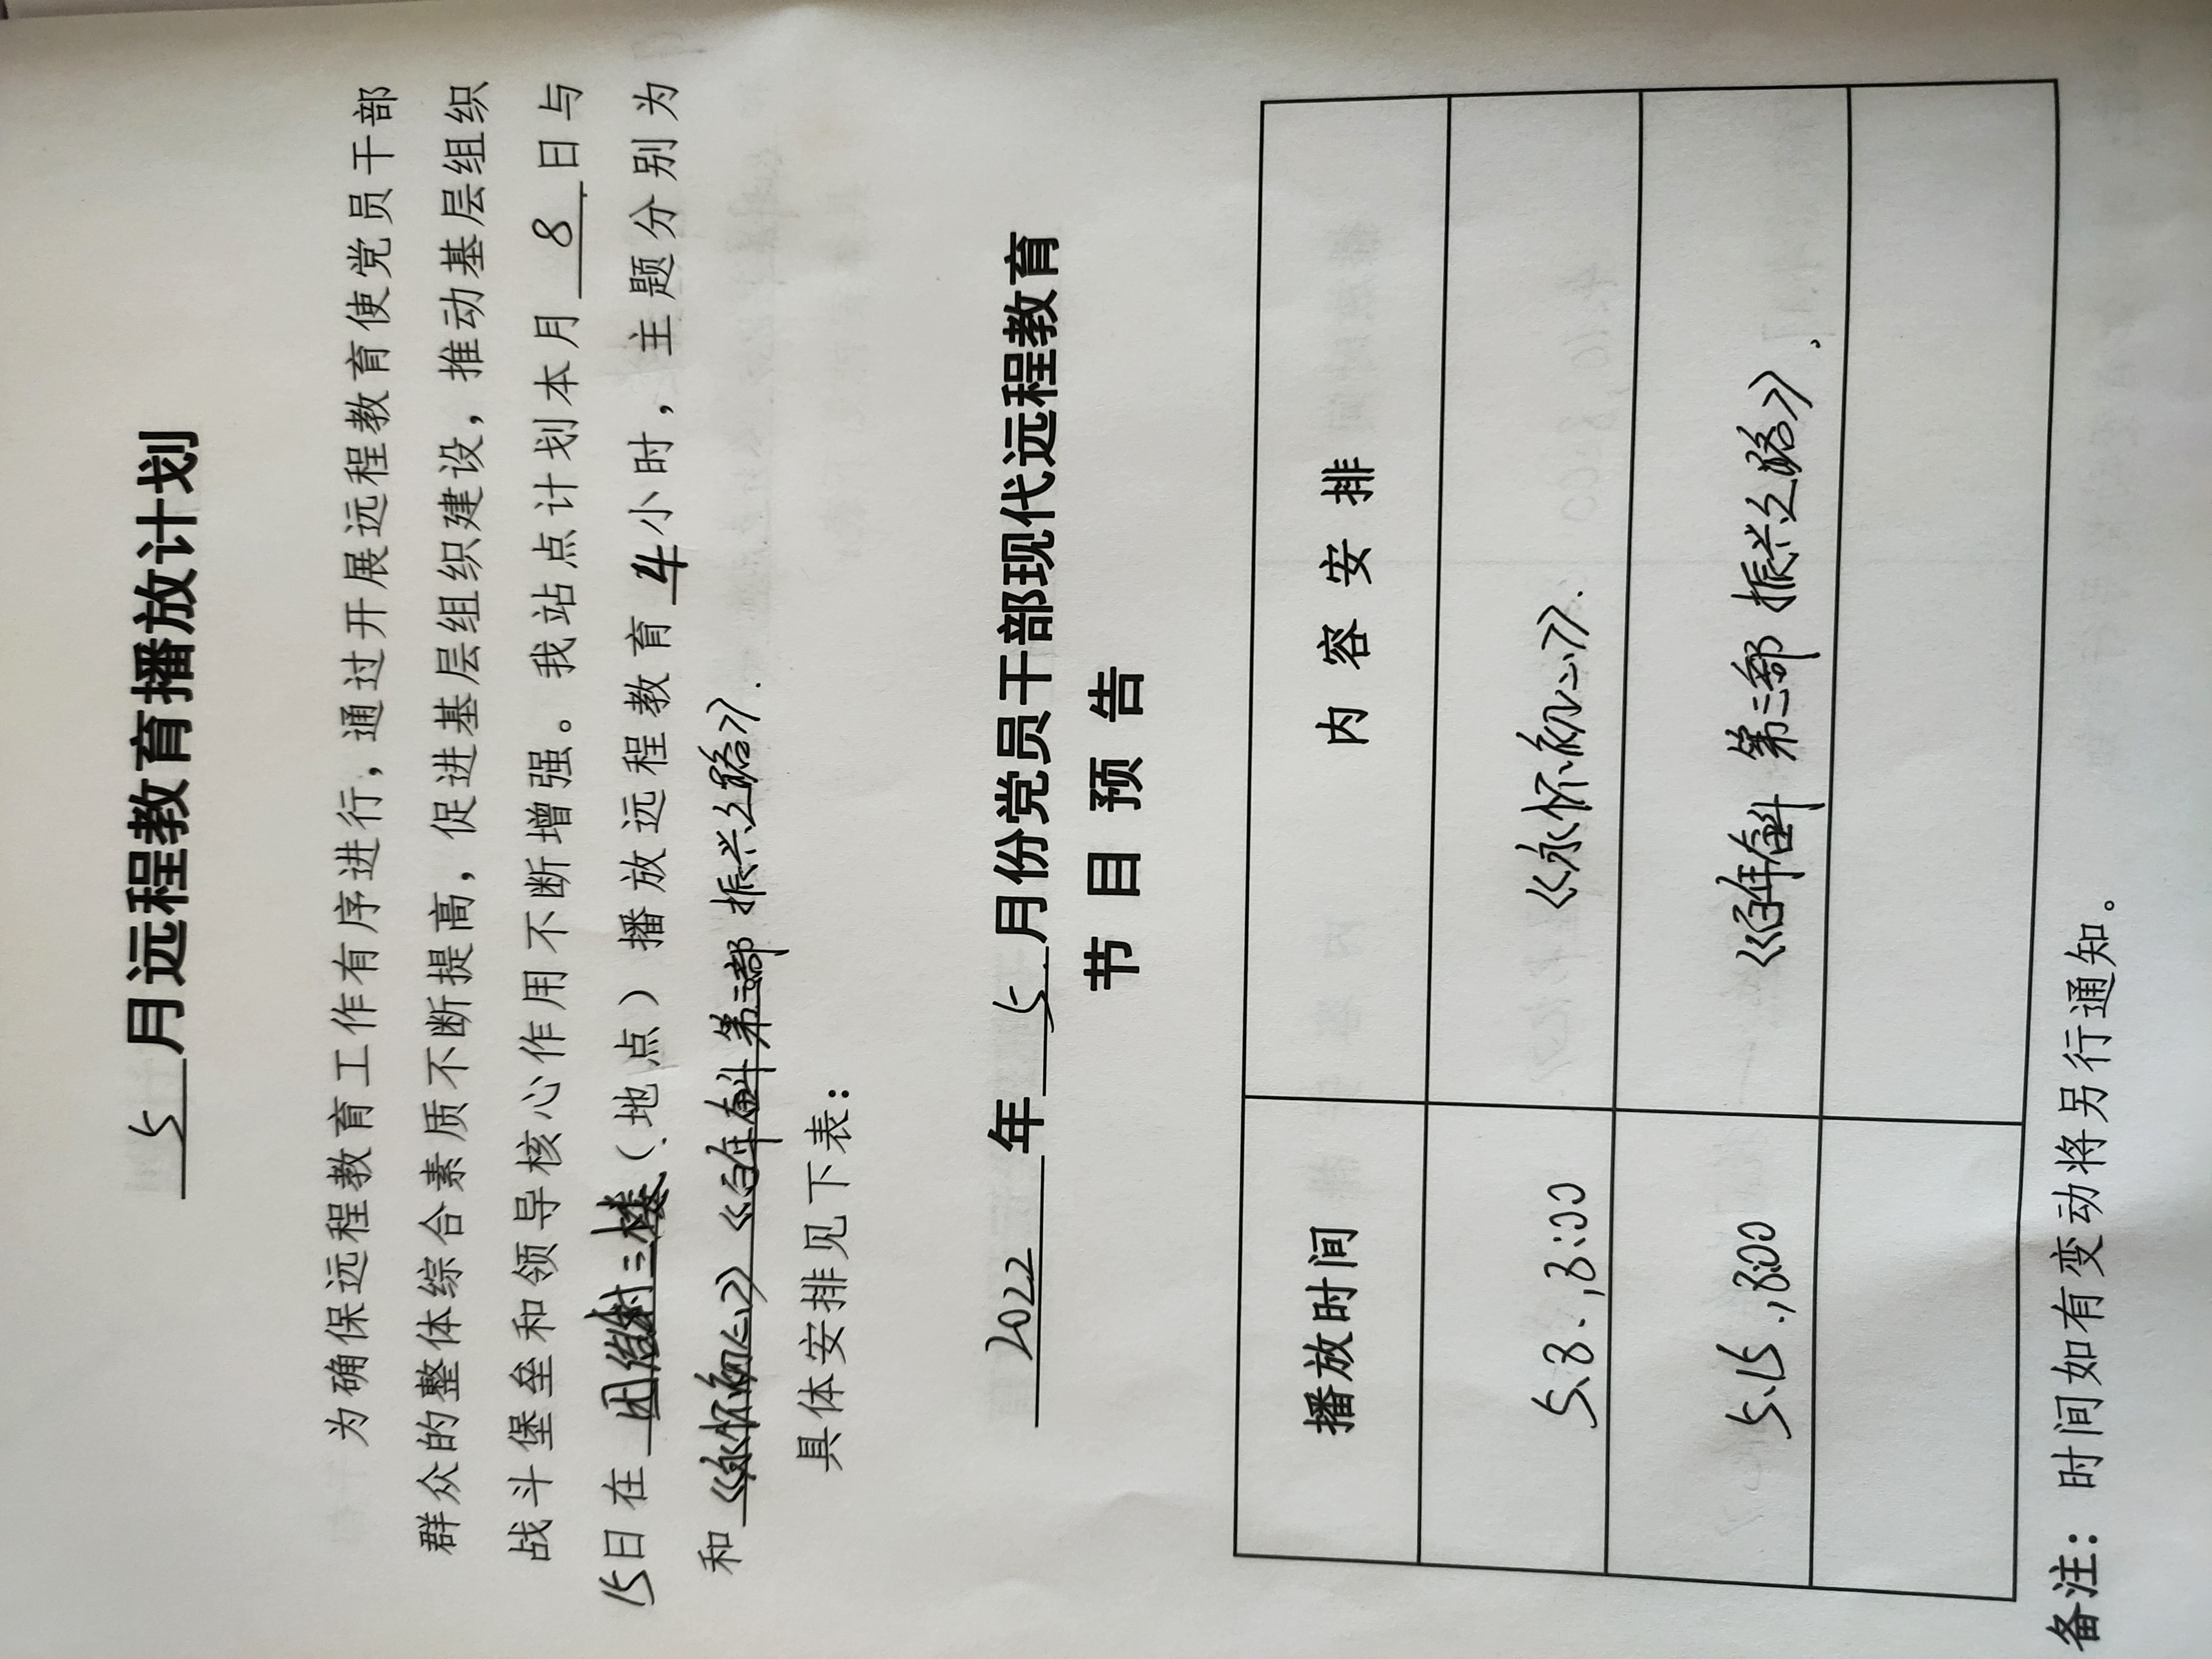 5月远程教育播放计划
为确保远程教育工作有序进行，通过开展远程教育使党员干部
群众的整体综合素质不断提高，促进基层组织建设，推动基层组织
战斗堡垒和领导核心作用不断增强。我站点计划本月 8 日与
15日在 三楼（地点）播放远程教育 4 小时，主题分别为
和《永怀初心》《百年奋斗 第三部 振兴之路》.
具体安排见下表：
2022 年 5 月份党员干部现代远程教育
节 目 预 告
播放时间 内 容 安 排
5.8.,8:00 《永怀初心》.
5.15.,8:00 《百年奋斗 第三部 振兴之路》.
备注：时间如有变动将另行通知。